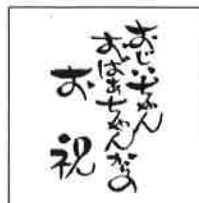 おじいちゃん
おばあちゃんからの
お祝